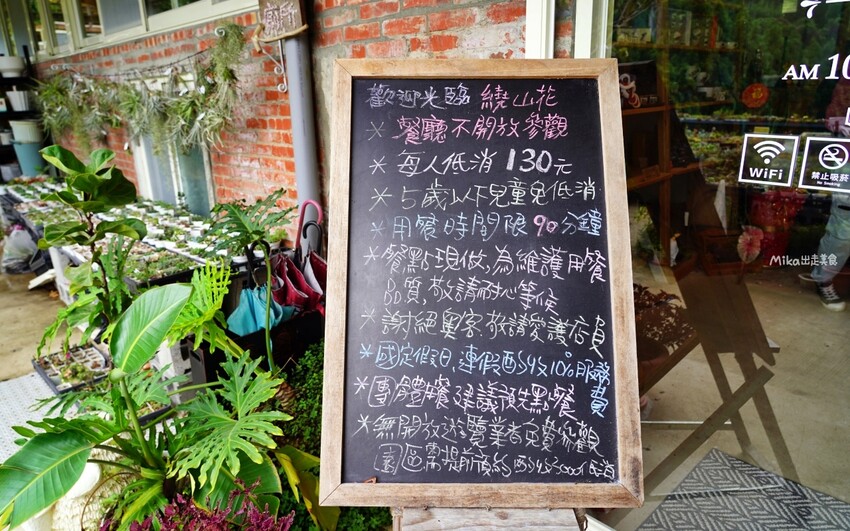 廁所
歡迎光臨 繞山花
* 餐廳不開放參觀
* 每人低消130元
* 5歲以下兒童免低消
* 用餐時間限90分鐘
* 餐點現做,為維護用餐
品質,敬請耐心等候
* 謝絕奧客 敬請愛護店員
* 國定假日,連假酌收10%服務費
* 團體用餐 建議預先點餐
* 無開放遊覽業者免費參觀
園區需提前預約 酌收
AM 10
WiFi
禁止吸菸
No Smoking
Mika出走美食